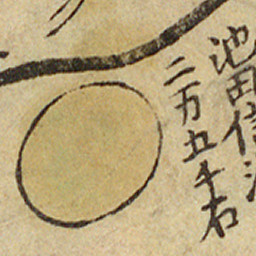 池田信濃
二万五千石